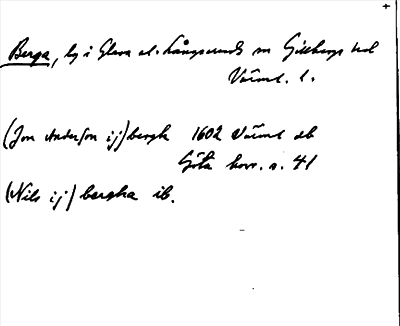 Berga, by i Glava el. Långserud sn Gillbergs hd
Värml. l.
(Jon Anderson ij) bergh 1602 Värml db
Göta hovr. n. 41
(Nils ij) bergha ib.